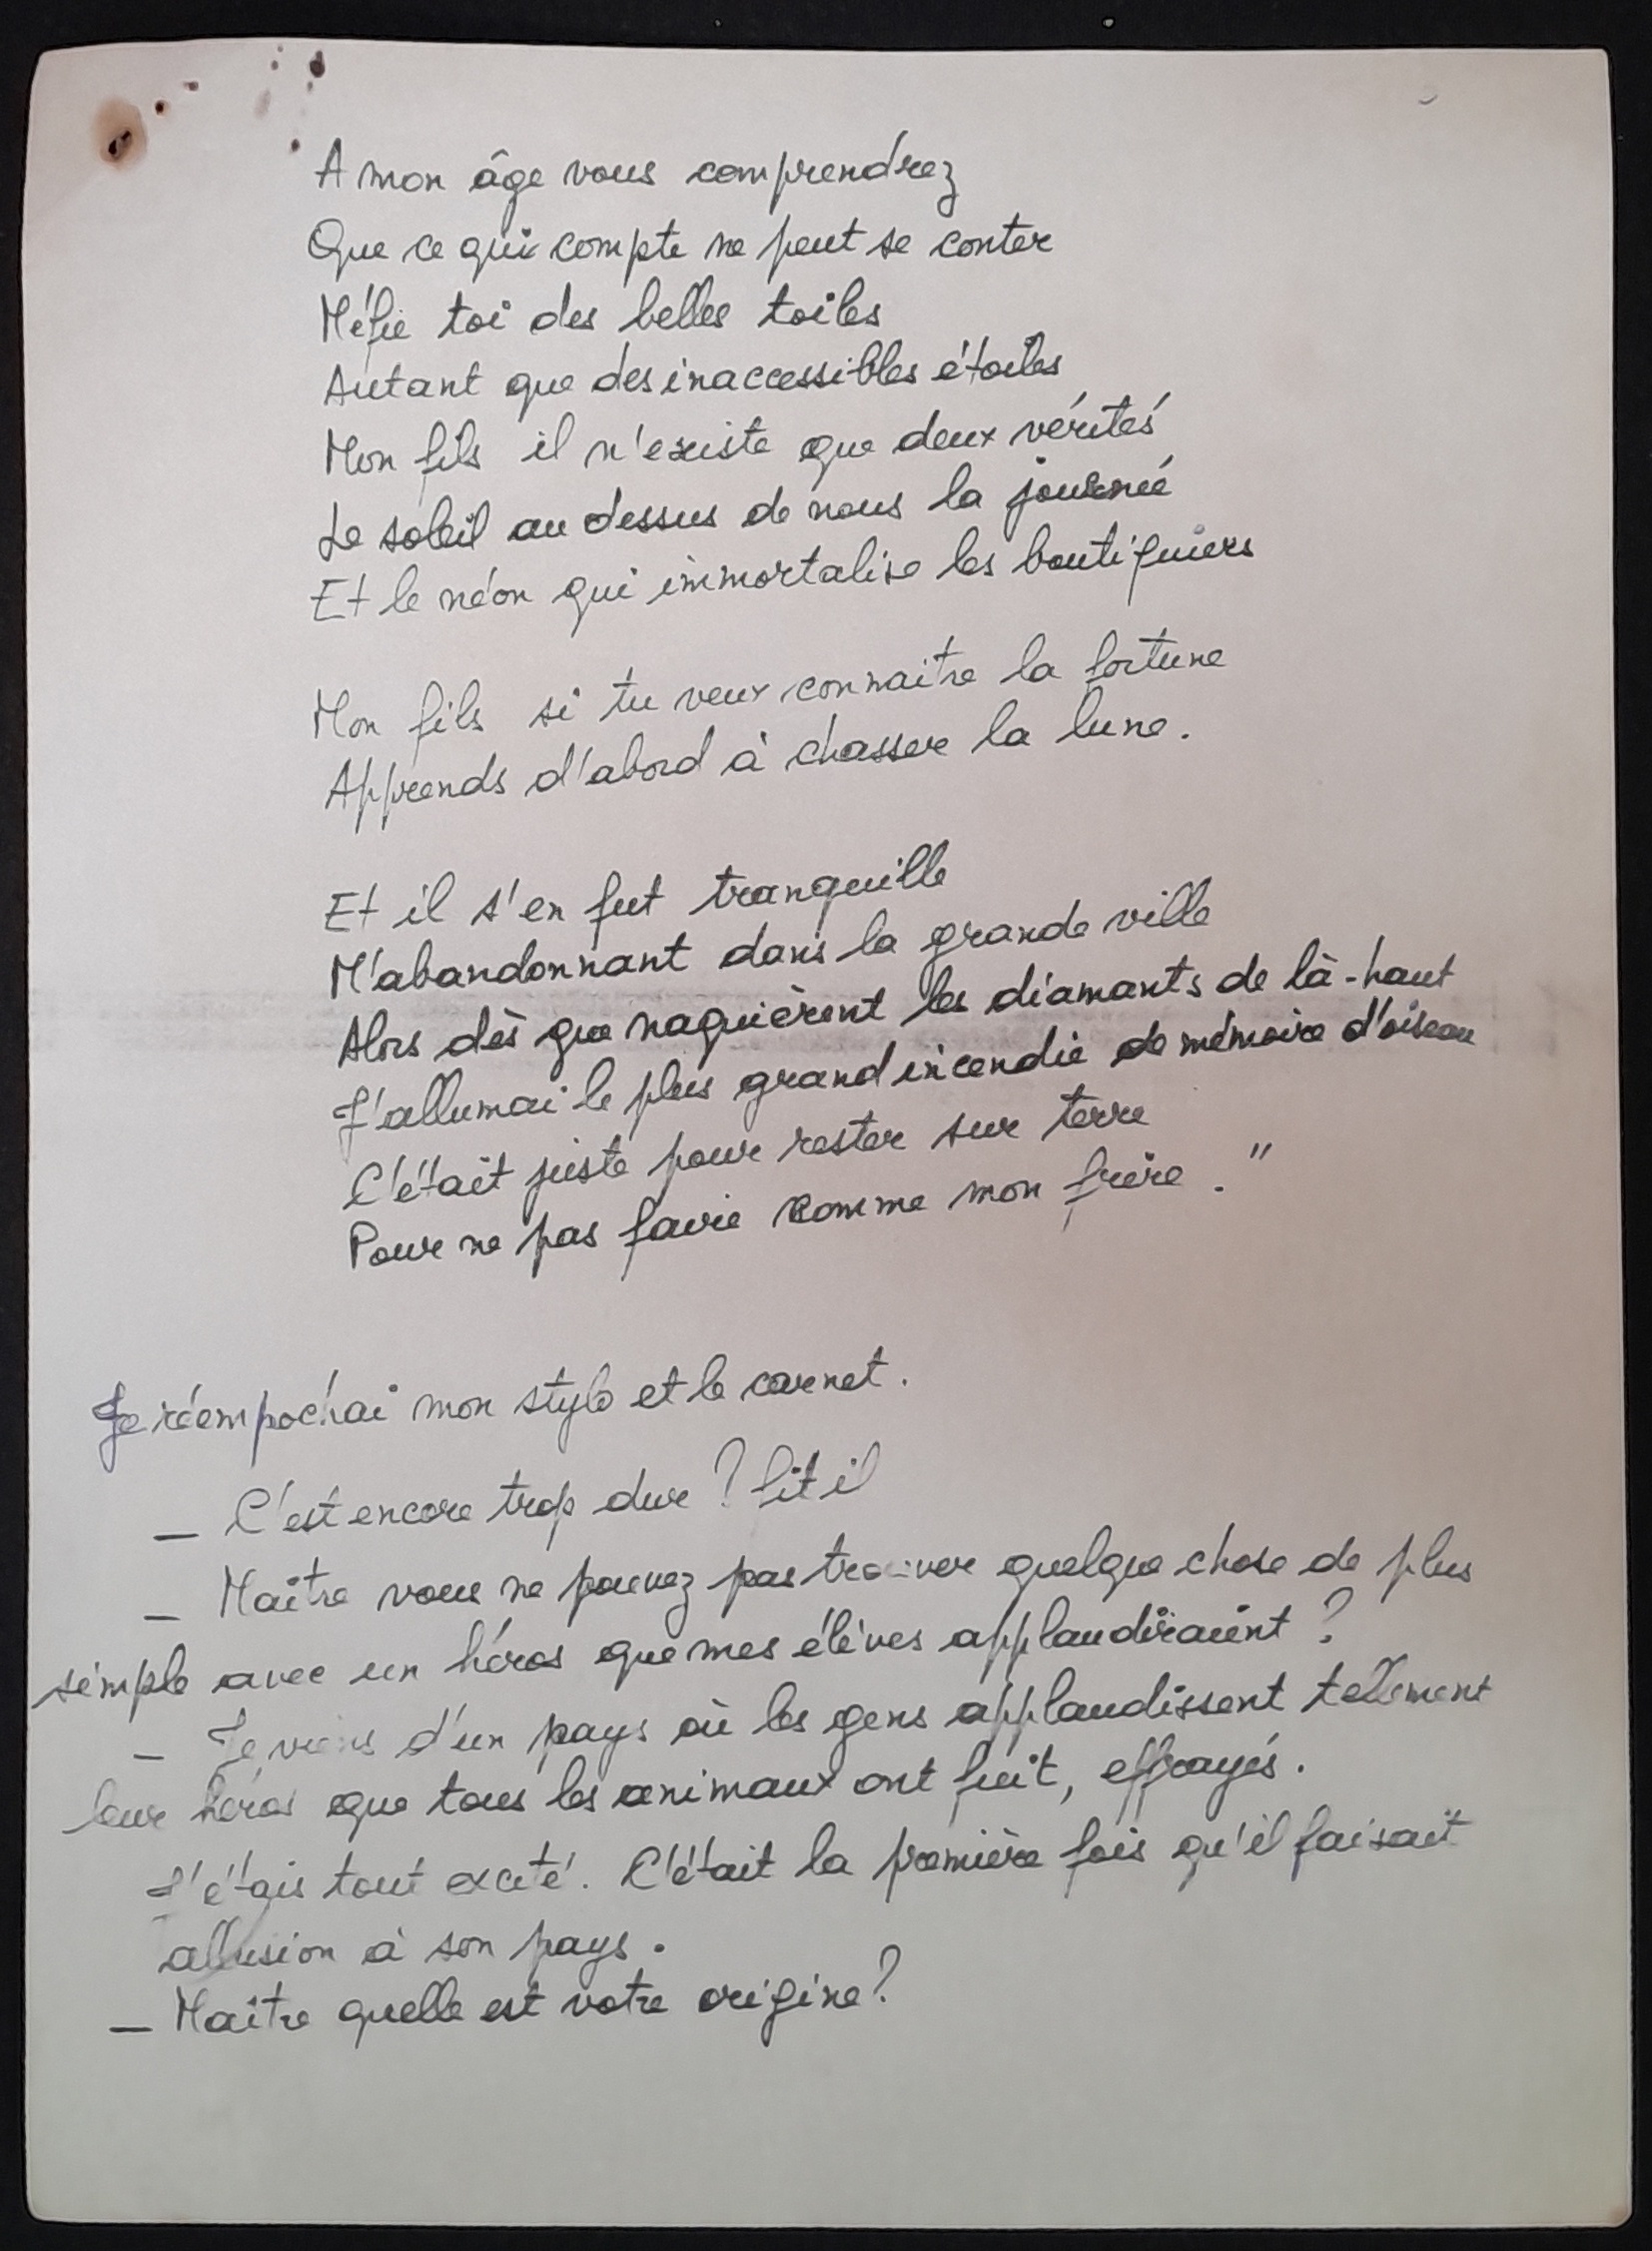 A mon âge vous comprendrez
Que ce qui compte ne peut se conter
Méfie toi des belles toiles
Autant que des inaccessibles étoiles
Mon fils il n'existe que deux vérités
Le soleil au dessus de nous la journée
Et le néon qui immortalise les boutiquiers
Mon fils si tu veux connaitre la fortune
Apprends d'abord à chasser la lune.
Et il s'en fut tranquille
M'abandonnant dans la grande ville
Alors dès que naquièrent les diamants de là-haut
J'allumai le plus grand incendie de mémoire d'oiseau
C'était juste pour rester sur terre
Pour ne pas faire comme mon frère."
Je réempochai mon stylo et le carnet.
_ C'est encore trop dur ? fit il
_ Maître vous ne pouvez pas trouver quelque chose de plus
simple avec un héros que mes élèves applaudiraient ?
_ Je viens d'un pays où les gens applaudissent tellement
leur héros que tous les animaux ont fuit, effrayés.
J'étais tout excité. C'était la première fois qu'il faisait
allusion à son pays.
_ Maître quelle est votre origine ?